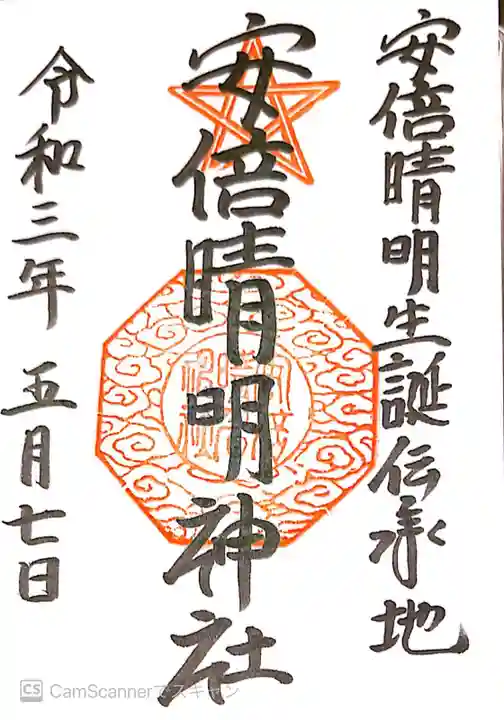 安倍晴明生誕伝承地
安倍晴明神社
令和三年 五月七日
CS CamScannerでスキャン